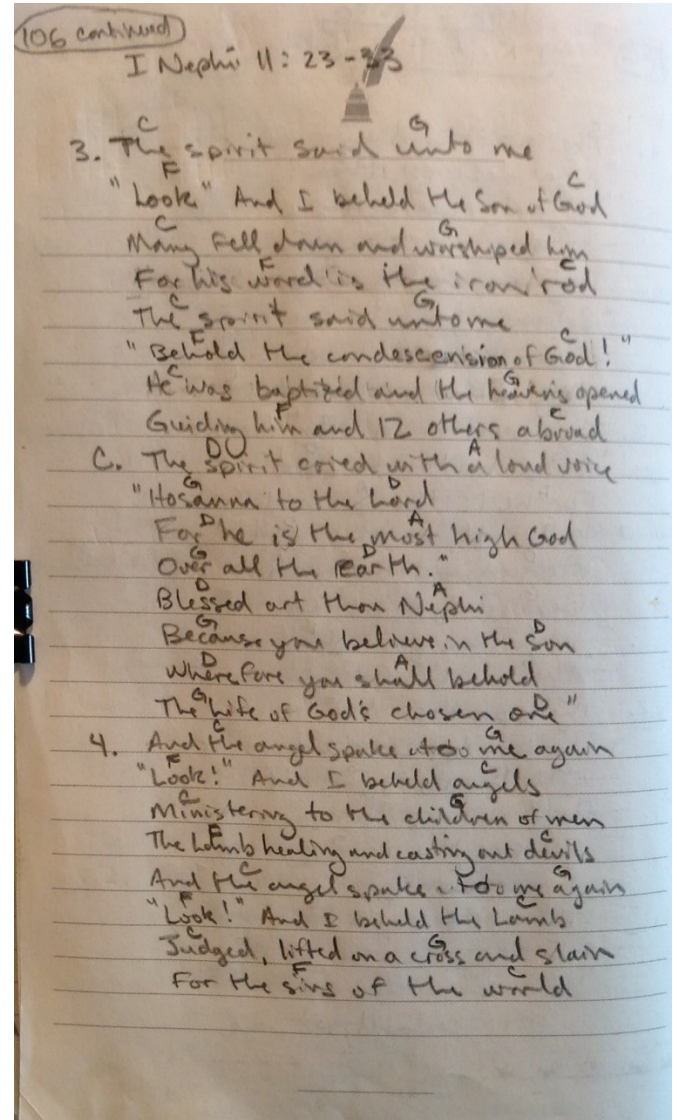 106 continued
I Nephi 11: 23-33
C G
3. The spirit said unto me
F C
"Look" And I beheld the Son of God
C G
Many fell down and worshiped him
F C
For his word is the iron rod
C G
The spirit said unto me
F C
"Behold the condescension of God!"
C G
He was baptized and the heavens opened
F C
Guiding him and 12 others abroad
D A
C. The spirit cried with a loud voice
G D
"Hosanna to the Lord
D A
For he is the most high God
G D
Over all the earth."
D A
Blessed art thou Nephi
G D
Because you believe in the Son
D A
Wherefore you shall behold
G D
The life of God's chosen one"
C G
4. And the angel spake to me again
F C
"Look!" And I beheld angels
C G
Ministering to the children of men
F C
The Lamb healing and casting out devils
C G
And the angel spake to me again
F C
"Look!" And I beheld the Lamb
C G
Judged, lifted on a cross and slain
F C
For the sins of the world